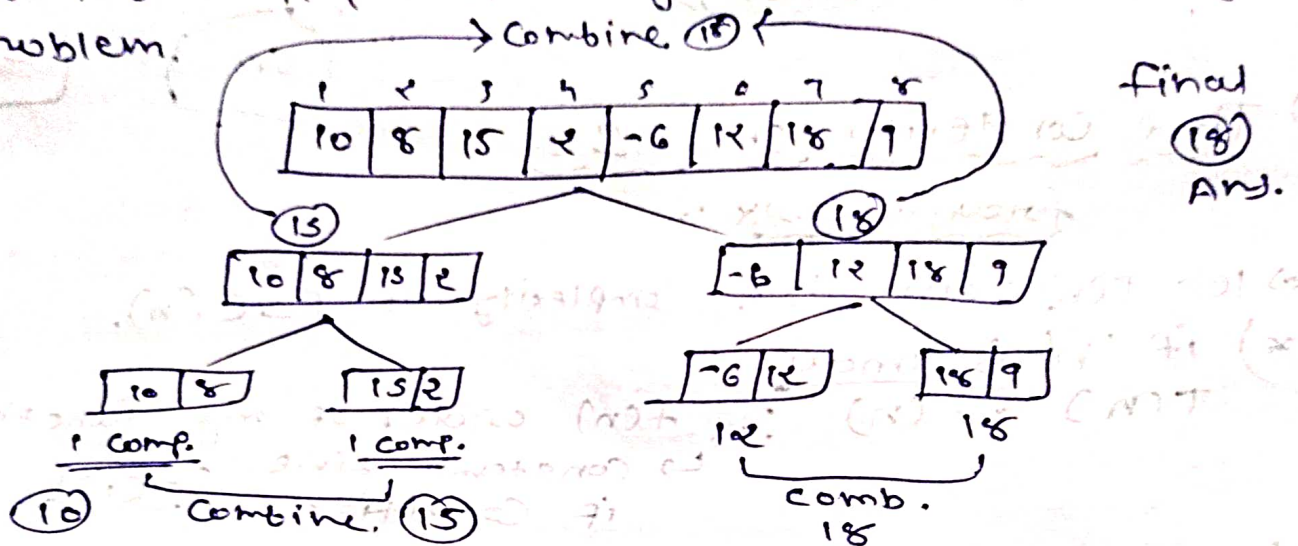 roblem.
→ Combine. 18
1 2 3 4 5 6 7 8
10 8 15 2 -6 12 18 9
final
18
Ans.
15 18
10 8 15 2 -6 12 18 9
10 8 15 2 -6 12 18 9
1 comp. 1 comp. 12. 18
10 Combine. 15 comb.
18